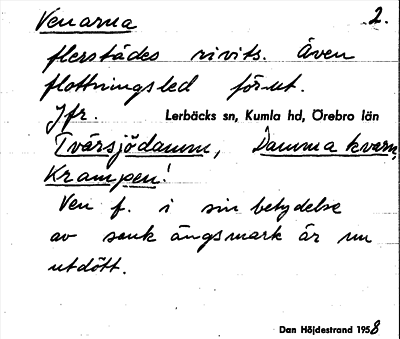 Venarna 2.
flerstädes rivits. Även
flottningsled förut.
Jfr. Lerbäcks sn, Kumla hd, Örebro län
Tvärsjödamm, Damma kvarn,
Krampen!
Ven f. i sin betydelse
av sank ängsmark är nu
utdött.
Dan Höjdestrand 1958